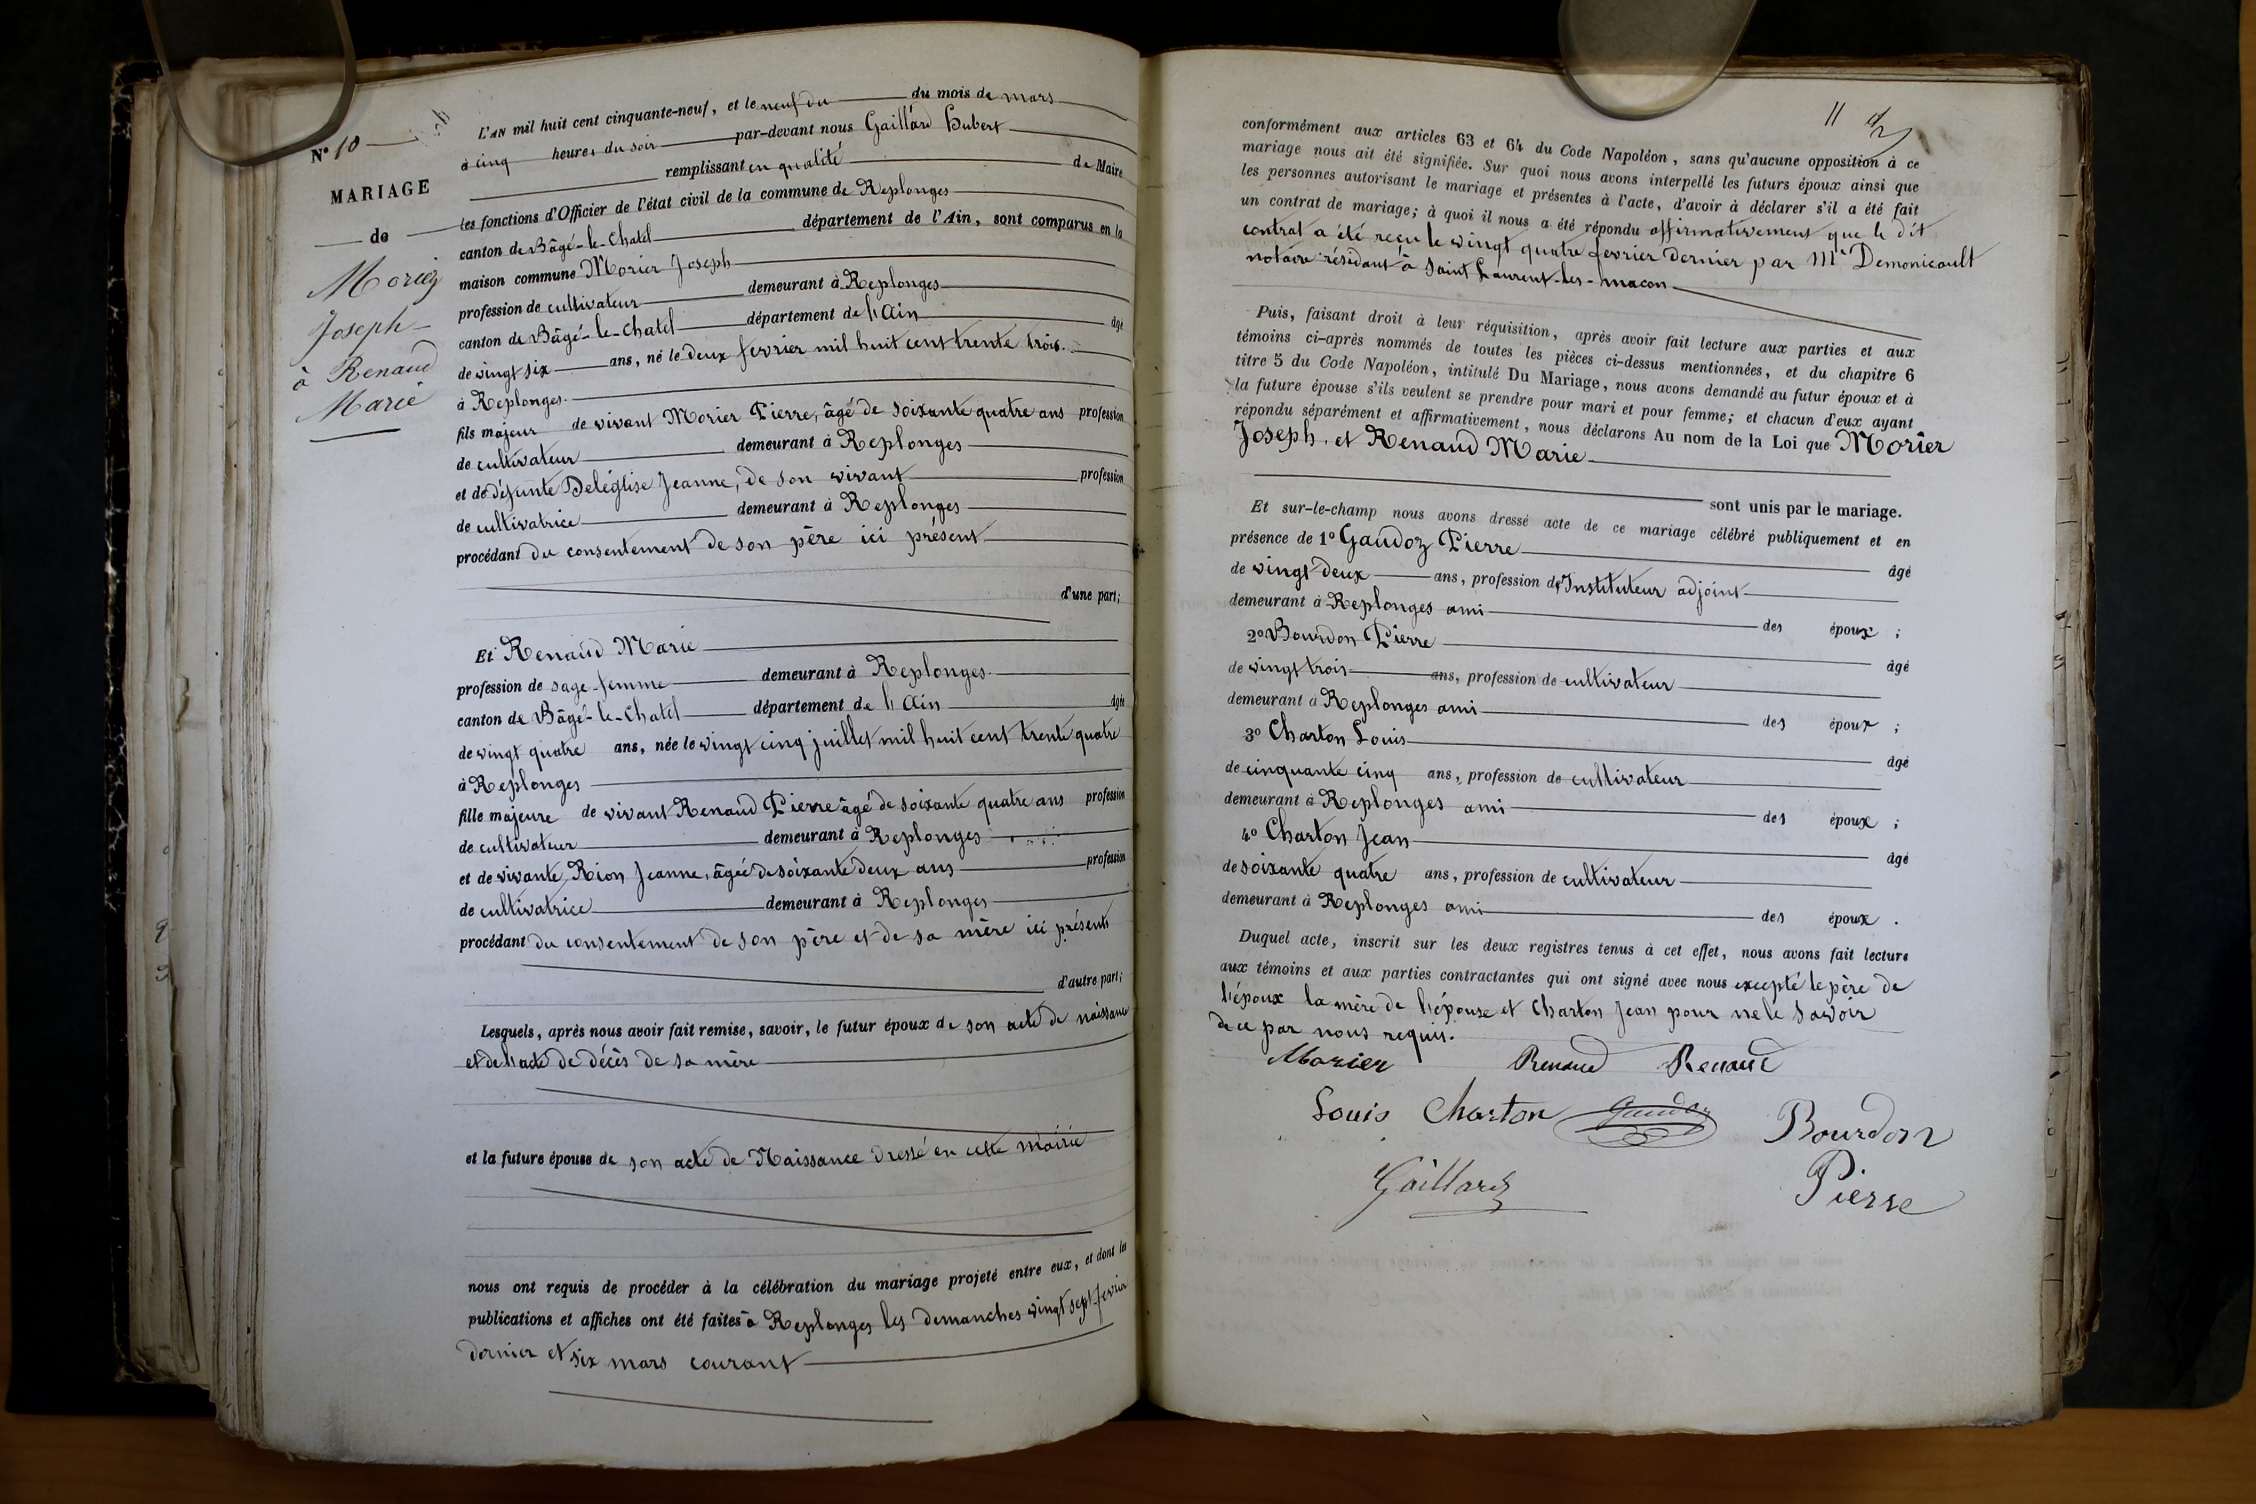 N° 10
MARIAGE
de
Morier
Joseph
à Renaud
Marie
L'AN mil huit cent cinquante-neuf, et le neuf du du mois de mars
à cinq heures du soir par-devant nous Gaillard Hubert
remplissant en qualité de Maire
les fonctions d'Officier de l'état civil de la commune de Replonges
canton de Bâgé-le-Chatel département de l'Ain, sont comparus en la
maison commune Morier Joseph
profession de cultivateur demeurant à Replonges
canton de Bâgé-le-Chatel département de l'Ain âgé
de vingt six ans, né le deux fevrier mil huit cent trente trois
à Replonges
fils majeur de vivant Morier Pierre, âgé de soixante quatre ans profession
de cultivateur demeurant à Replonges
et de défunte Deléglise Jeanne, de son vivant profession
de cultivatrice demeurant à Replonges
procédant du consentement de son père ici présent
d'une part;
Et Renaud Marie
profession de sage-femme demeurant à Replonges
canton de Bâgé-le-Chatel département de l'Ain âgée
de vingt quatre ans, née le vingt cinq juillet mil huit cent trente quatre
à Replonges
fille majeure de vivant Renaud Pierre âgé de soixante quatre ans profession
de cultivateur demeurant à Replonges
et de vivante Rion Jeanne, âgée de soixante deux ans profession
de cultivatrice demeurant à Replonges
procédant du consentement de son père et de sa mère ici présents
d'autre part;
Lesquels, après nous avoir fait remise, savoir, le futur époux de son acte de naissance
et de l'acte de décès de sa mère
et la future épouse de son acte de Naissance dressé en cette mairie
nous ont requis de procéder à la célébration du mariage projeté entre eux, et dont les
publications et affiches ont été faites à Replonges les demanches vingt sept fevrier
dernier et six mars courant
11
conformément aux articles 63 et 64 du Code Napoléon, sans qu'aucune opposition à ce
mariage nous ait été signifiée. Sur quoi nous avons interpellé les futurs époux ainsi que
les personnes autorisant le mariage et présentes à l'acte, d'avoir à déclarer s'il a été fait
un contrat de mariage; à quoi il nous a été répondu affirmativement que le dit
contrat a été reçu le vingt quatre fevrier dernier par Me Demonicault
notaire résidant à Saint Laurent-les-macon
Puis, faisant droit à leur réquisition, après avoir fait lecture aux parties et aux
témoins ci-après nommés de toutes les pièces ci-dessus mentionnées, et du chapitre 6
titre 5 du Code Napoléon, intitulé Du Mariage, nous avons demandé au futur époux et à
la future épouse s'ils veulent se prendre pour mari et pour femme; et chacun d'eux ayant
répondu séparément et affirmativement, nous déclarons Au nom de la Loi que Morier
Joseph, et Renaud Marie
sont unis par le mariage.
Et sur-le-champ nous avons dressé acte de ce mariage célébré publiquement et en
présence de 1° Gaudoz Pierre âgé
de vingt deux ans, profession d'Instituteur adjoint
demeurant à Replonges ami des époux ;
2° Bourdon Pierre âgé
de vingt trois ans, profession de cultivateur
demeurant à Replonges ami des époux ;
3° Charton Louis âgé
de cinquante cinq ans, profession de cultivateur
demeurant à Replonges ami des époux ;
4° Charton Jean âgé
de soixante quatre ans, profession de cultivateur
demeurant à Replonges ami des époux .
Duquel acte, inscrit sur les deux registres tenus à cet effet, nous avons fait lecture
aux témoins et aux parties contractantes qui ont signé avec nous excepté le père de
l'époux la mère de l'épouse et Charton Jean pour ne le savoir
de ce par nous requis.
Morier Renaud Renaud
Louis Charton Gaudoz Bourdon
Gaillard Pierre